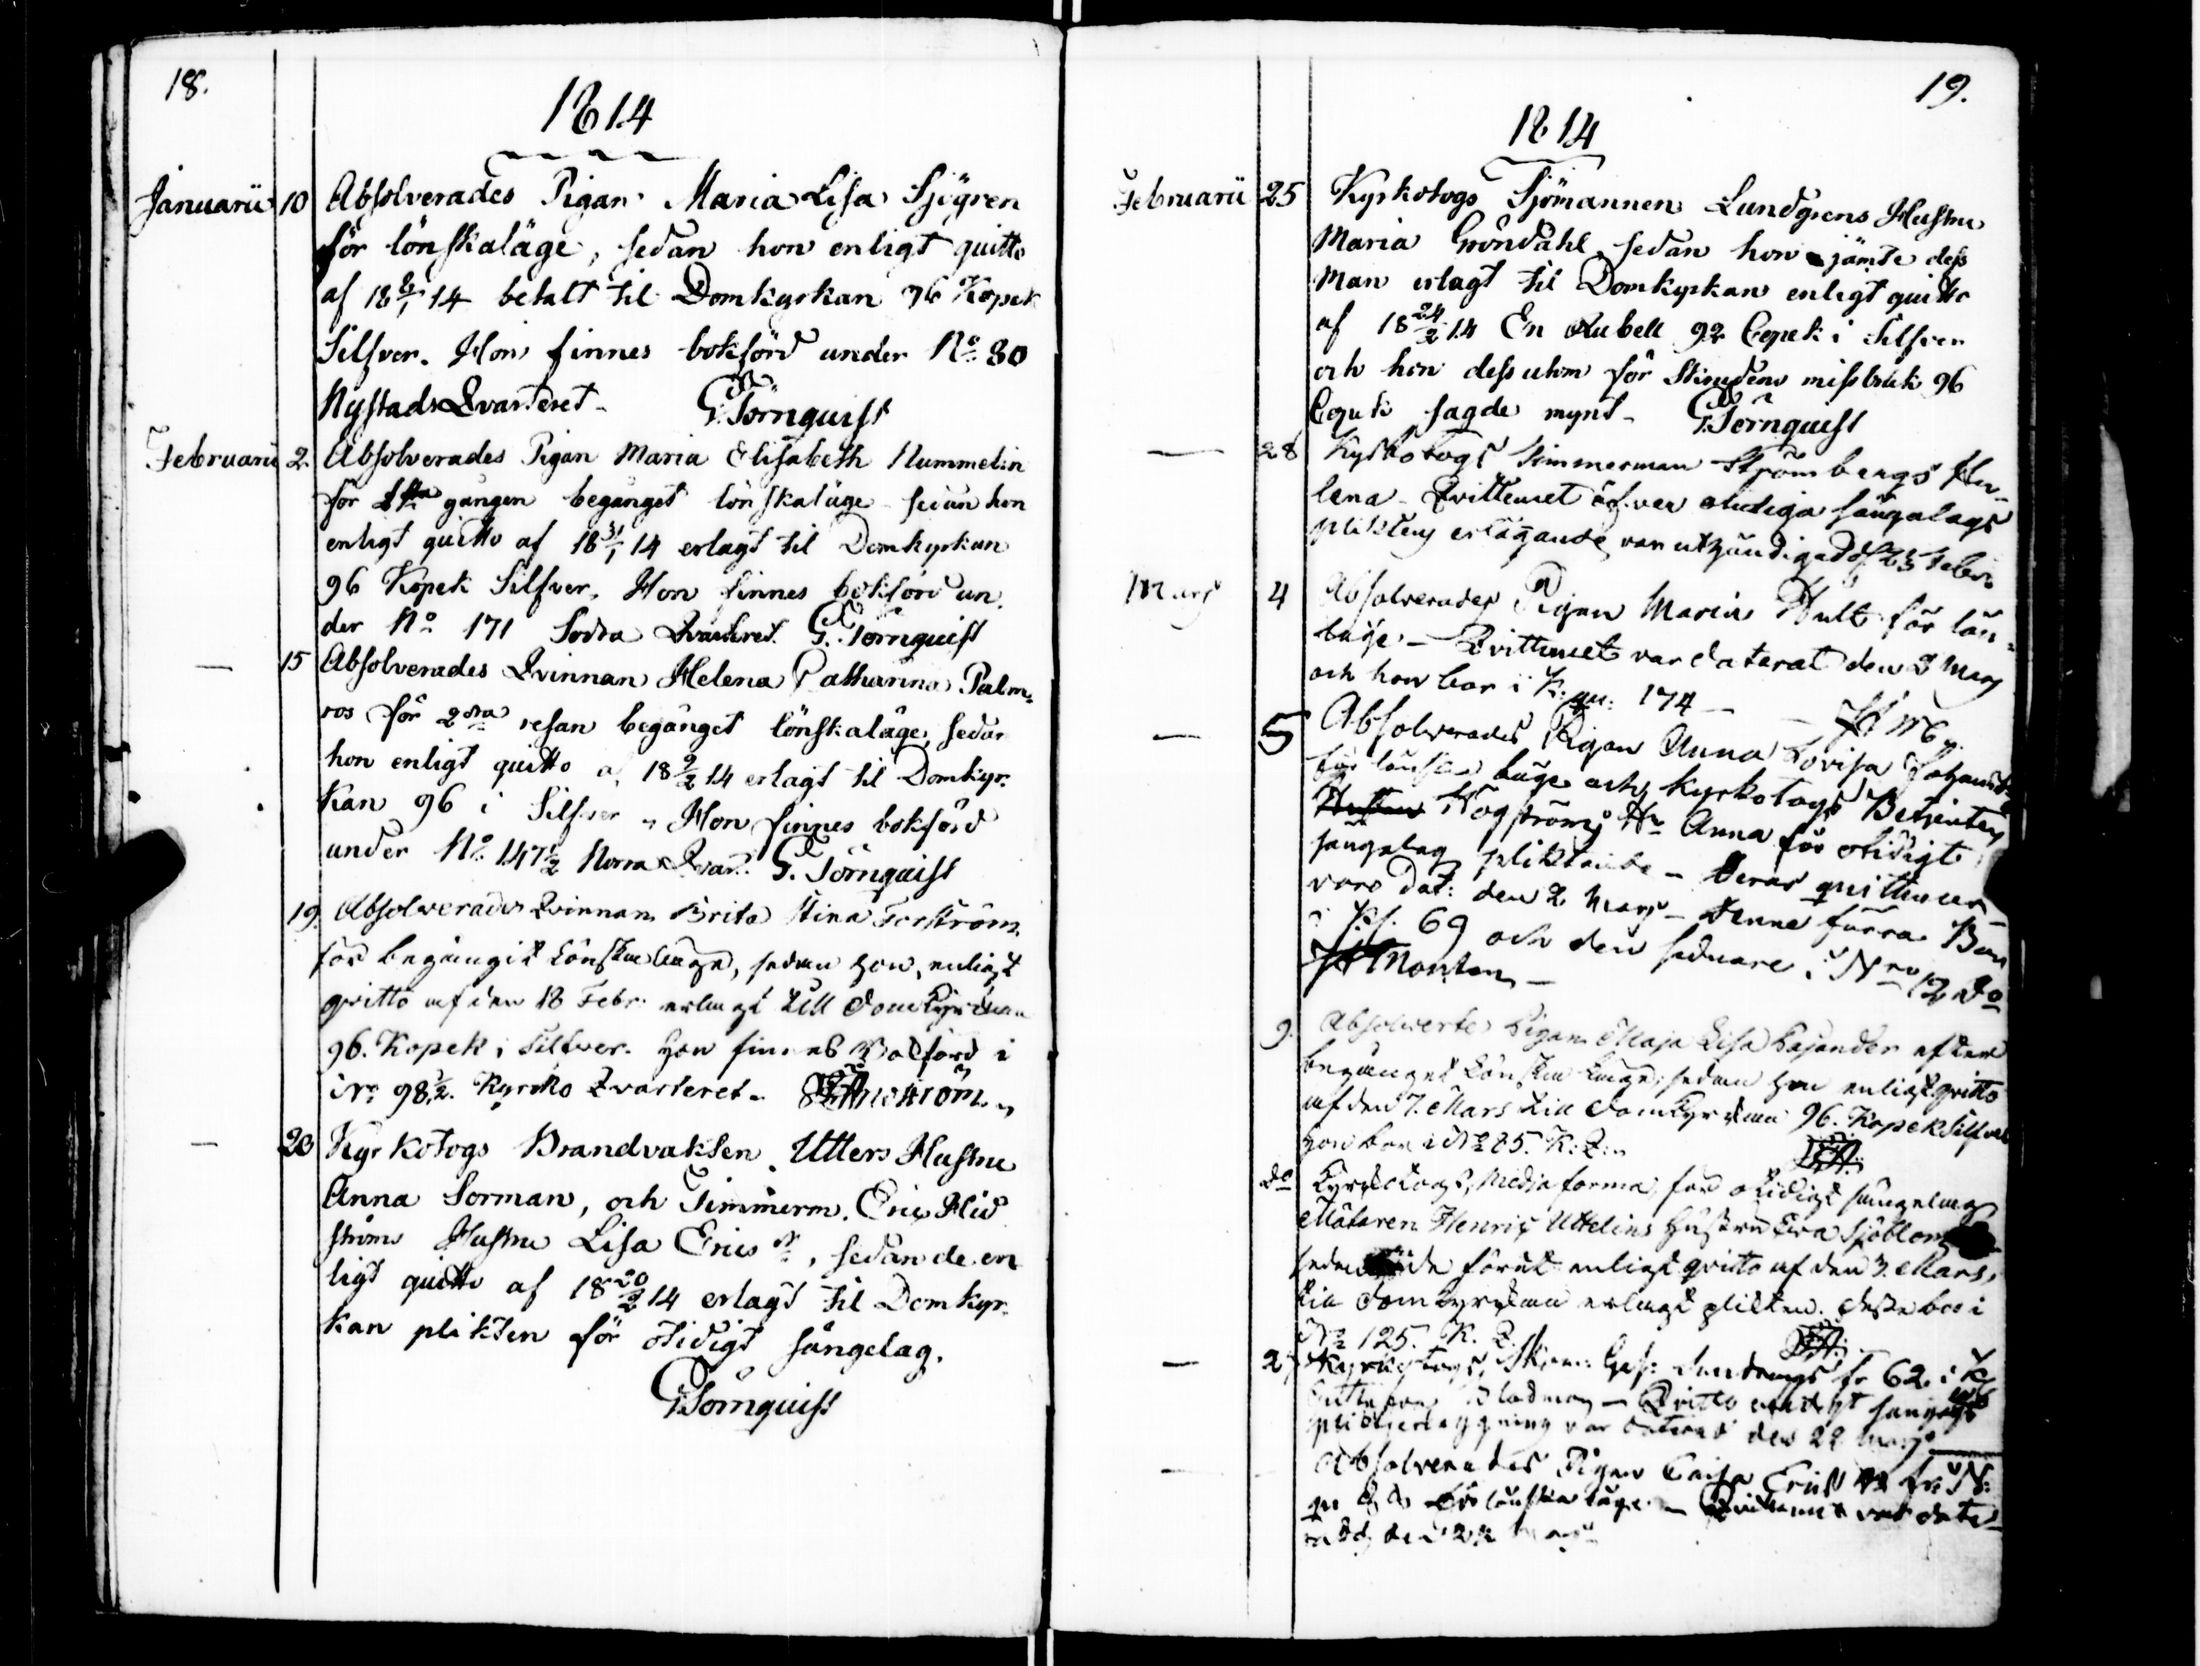 18.
1814
Januarii 10 Absolverades Pigan Maria Lisa Sjögren
för lönskaläge, sedan hon enligt quitto
af 18 8/1 14 betalt til Domkyrkan 96 Kopek
Silfver. Hon finnes bokförd under No 80
Nystads Qvarteret. G. Törnquist
Februarii 2. Absolverades Pigan Maria Elisabeth Nummelin
för gången begånget lönskaläge sedan hon
enligt quitto af 18 31/1 14 erlagt til Domkyrkan
96 Kopek Silfver. Hon finnes bokförd un-
der No 171 Södra Qvarteret. G. Törnquist
— 15 Absolverades Qvinnan Helena Catharina Palm-
ros för 2dra resan begånget lönskaläge, sedan
hon enligt quitto af 18 9/2 14 erlagt til Domkyr-
kan 96 i Silfver. Hon finnes bokförd
under No 147 1/2 Norra Qvar. G. Törnquist
19. Absolverades Qvinnan Brita Stina Forsström
för begångit Lönskaläge, sedan hon, enligt
qvitto af den 18 Febr. erlagt till Domkyrkan
96. Kopek i Silfver. Hon finnes Bokförd i
No 98 1/2. Kyrko Qvarteret.
— 20 Kyrkotogs Brandvakten Utters Hustru
Anna Sorman, och Timmerm. Eric Hid
ströms Hustru Lisa Ericsdr, sedan de en
ligt quitto af 18 20/2 14 erlagt til Domkyr-
kan plikten för otidigt sängelag.
G. Törnquist
19.
1814
Februarii 25 Kyrkotogs Sjömannen Lundgrens Hustru
Maria Gröndahl, sedan hon jämte dess
Man erlagt til Domkyrkan enligt quitto
af 18 24/2 14 En Rubell 92 Copek i Silfver
och hon dessutom för Skrudens missbruk 96
Copek sagde mynt. G. Törnquist
— 28 Kyrkotogs Timmerman Strömbergs He-
lena Qvittencet öfver otidiga sängalags
pliktens erläggande var utgändigad d. 25 Febr.
Mars 4 Absolverades Pigan Maria Hult för lön-
läge. — Qvittencet var daterat den 3 Mars
och hon bor i K. qu: 174 —
— 5 Absolverades Pigan Anna Lovisa Johansdr
för lönska läge och Kyrkotogs Betjenten
Högströms Hu Anna för otidigt
sängalag pliktande — Deras quittencer
voro Dat: den 2 Mars — Denne förra Bor
69 och den sednare i No 12 do
Monten —
9. Absolverte Pigan Maja Lisa Cajander efter
begånget Lönska Läge, sedan hon enligt qvitto
af den 7. Mars till Domkyrkan 96. Kopek Silfver
hon bor i No 285. K: Q:
do Kyrkotogs, Media forma, för otidigt sängelag
Mätaren Henric Uttelius Hustru Eva Sjöblom
sedan de förut enligt qvitto af den 3. Mars,
till Domkyrkan erlagt plikten. Desse bo i
No 125. K. Q.
— 27 Kyrkotogs, Skom: Ges: Sundbergs fr 62. i K
— Qvitto
var daterat den 22 Mars
— Absolverades Pigan Caisa Ericsdr fr: N:
qu för lönska läge — Qvittencet var date-
den 22 Mars